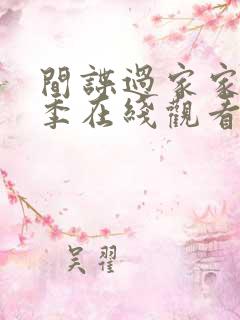 間諜過家家
季在綫觀看
吴翟